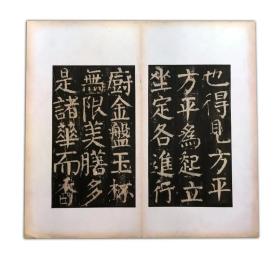 也得見方平
方平為起立
坐定各進行
廚金盤玉杯
無限美膳多
是諸華而